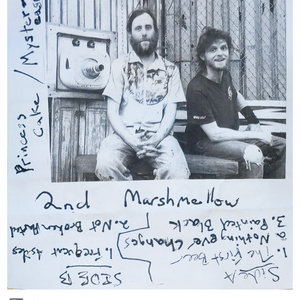 Princess
Cake / Myster
2nd Marshmellow
Side A
1. The First Beer
2 Nothing ever changes
3. Painted Black
SIDE B
1. Frequent Asides
2. Not Broken